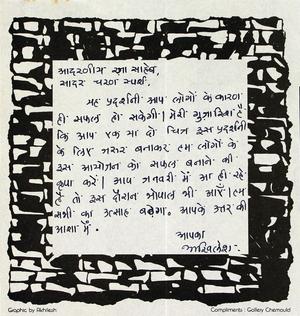 आदरणीय रज़ा साहेब,
सादर चरण स्पर्श.
यह प्रदर्शनी आप लोगों के कारण
ही सफल हो सकेगी। मेरी गुज़ारिश है
कि आप एक या दो चित्र इस प्रदर्शनी
के लिए जरुर बनाकर हम लोगों के
इस आयोजन को सफल बनाने की
कृपा करें। आप जनवरी में आ ही रहे
हैं तो इस दौरान भोपाल भी आएँ। हम
सभी का उत्साह बढ़ेगा. आपके उत्तर की
आशा में.
आपका
अखिलेश.
Graphic by Akhilesh
Compliments : Gallery Chemould